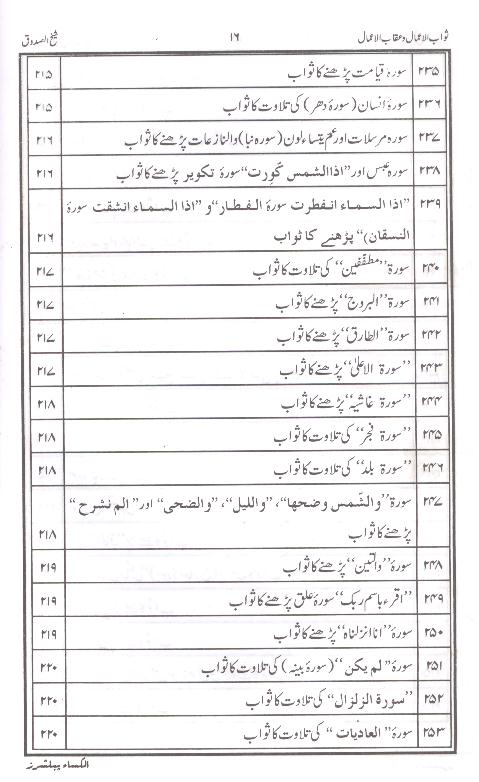 ثواب الاعمال و عقاب الاعمال ۱۶ شیخ الصدوق
۲۳۵ سورۂ قیامت پڑھنے کا ثواب ۲۱۵
۲۳۶ سورۂ انسان (سورۂ دھر) کی تلاوت کا ثواب ۲۱۵
۲۳۷ سورہ مرسلات اور عم یتساءلون (سورہ نبا) والنازعات پڑھنے کا ثواب ۲۱۶
۲۳۸ سورہ عبس اور ”اذا الشمس کورت“ سورۂ تکویر پڑھنے کا ثواب ۲۱۶
۲۳۹ ”اذا السماء انفطرت سورۃ الفطار“ و ”اذا السماء انشقت سورۃ
النسقان)“ پڑھنے کا ثواب ۲۱۶
۲۴۰ سورۃ ”مطففین“ کی تلاوت کا ثواب ۲۱۷
۲۴۱ سورۃ ”البروج“ پڑھنے کا ثواب ۲۱۷
۲۴۲ سورۃ ”الطارق“ پڑھنے کا ثواب ۲۱۷
۲۴۳ ”سورۃ الاعلیٰ“ پڑھنے کا ثواب ۲۱۷
۲۴۴ ”سورۃ غاشیہ“ پڑھنے کا ثواب ۲۱۸
۲۴۵ ”سورۃ فجر“ کی تلاوت کا ثواب ۲۱۸
۲۴۶ ”سورۃ بلد“ کی تلاوت کا ثواب ۲۱۸
۲۴۷ سورۃ ”والشّمس وضحھا“، ”واللیل“، ”والضحی“ اور ”الم نشرح“
پڑھنے کا ثواب ۲۱۸
۲۴۸ سورۂ ”والتین“ پڑھنے کا ثواب ۲۱۹
۲۴۹ ”اقرء باسم ربک“ سورۂ علق پڑھنے کا ثواب ۲۱۹
۲۵۰ سورۂ ”انا انزلناہ“ پڑھنے کا ثواب ۲۱۹
۲۵۱ سورۂ ”لم یکن“ (سورۂ بینہ) کی تلاوت کا ثواب ۲۲۰
۲۵۲ ”سورۃ الزلزال“ کی تلاوت کا ثواب ۲۲۰
۲۵۳ سورۂ ”العادیات“ کی تلاوت کا ثواب ۲۲۰
الکساء پبلیشرز